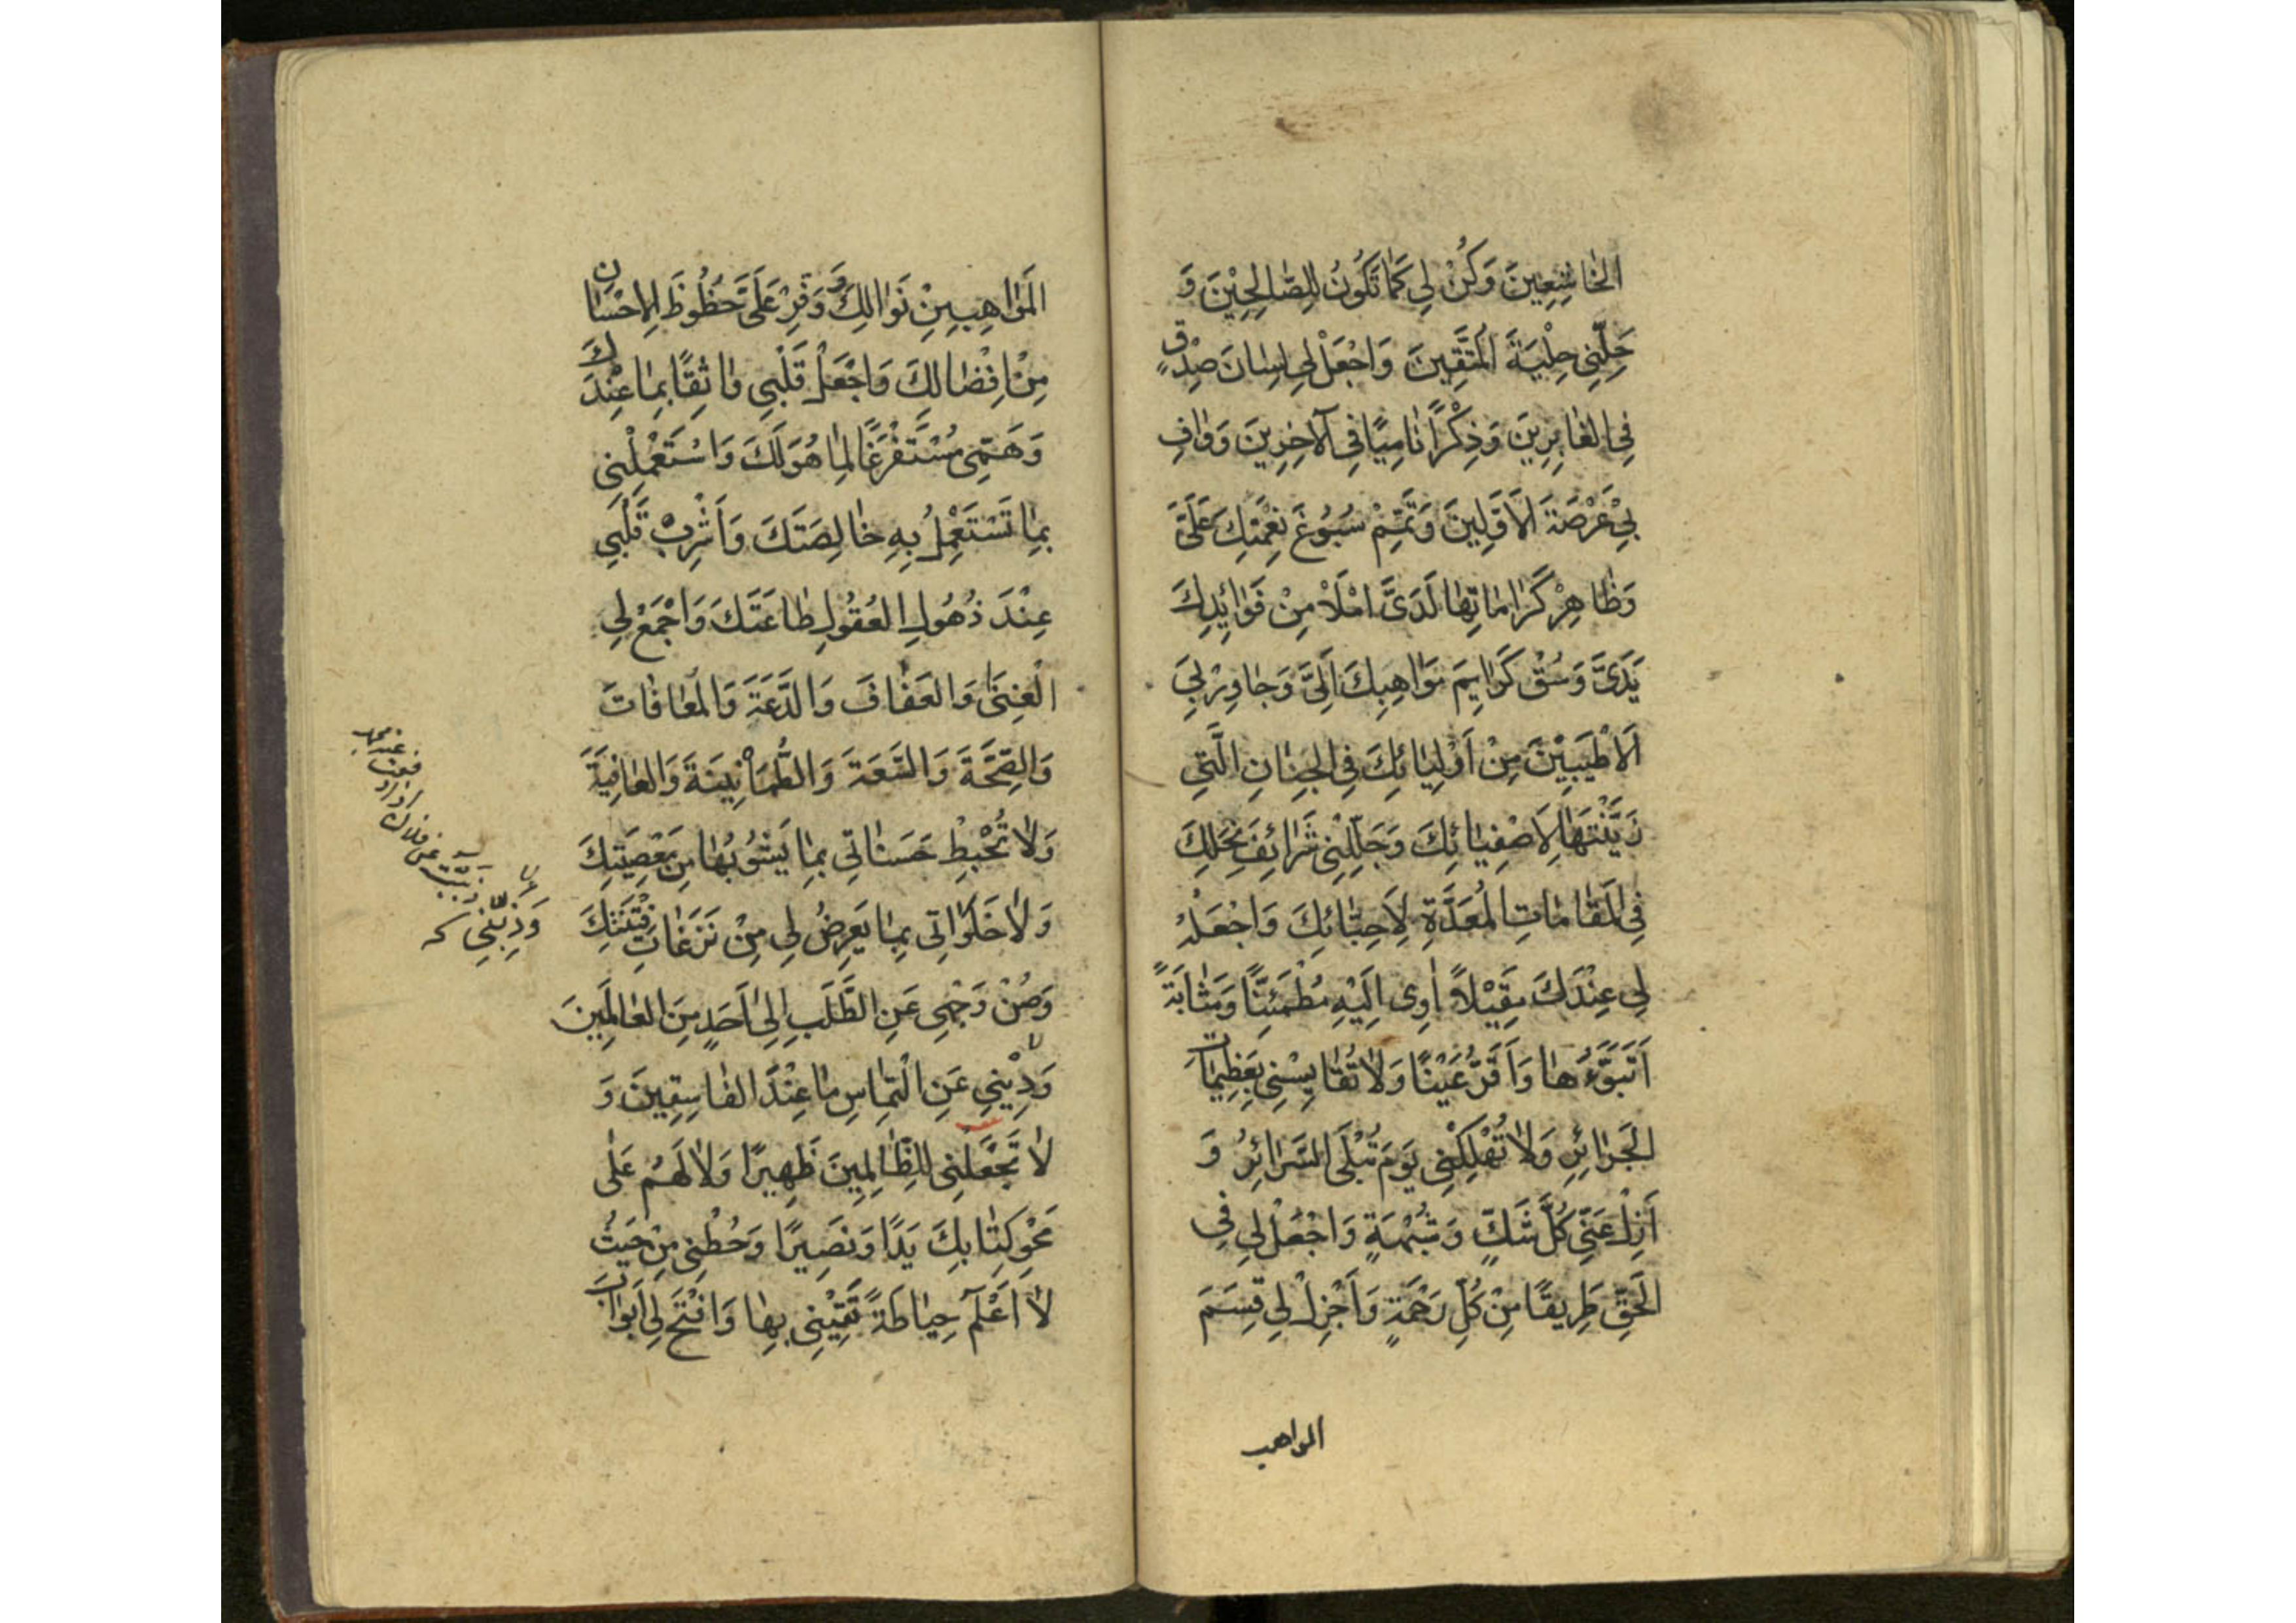 الخَاشِعِينَ وَكُنْ لِي كَمَا تَكُونُ لِلصَّالِحِيْنَ وَ
حَلِّنِي حِلْيَةَ الْمُتَّقِينَ وَاجْعَلْ لِي لِسَانَ صِدْقٍ
فِي الغَابِرِينَ وَذِكْرًا نَامِيًا فِي الآخِرِينَ وَوَافِ
بِيْ عَرْصَةَ الاَوَّلِينَ وَتَمِّمْ سُبُوغَ نِعْمَتِكَ عَلَيَّ
وَظَاهِرْ كَرَامَاتِهَا لَدَىَّ امْلَاْ مِنْ فَوَائِدِكَ
يَدَىَّ وَسُقْ كَرَايِمَ مَوَاهِبِكَ اِلَىَّ وَجَاوِرْ بِيَ
الاَطْيَبِيْنَ مِنْ اَوْلِيَائِكَ فِي الجِنَانِ الَّتِي
زَيَّنْتَهَا لِاَصْفِيَائِكَ وَجَلِّلْنِي شَرَائِفَ نِحَلِكَ
فِي الْمَقَامَاتِ الْمُعَدَّةِ لِاَحِبَّائِكَ وَاجْعَلْ
لِي عِنْدَكَ مَقِيْلاً اٰوِى اِلَيْهِ مُطْمَئِنًّا وَمَثَابَةً
اَتَبَوَّءُهَا وَاَقَرُّ عَيْنًا وَلَا تُقَايِسْنِي بِعَظِيمَاتِ
الجَرَائِرِ وَلَا تُهْلِكْنِي يَوْمَ تُبْلَى السَّرَائِرُ وَ
اَزِلْ عَنِّي كُلَّ شَكٍّ وَشُبْهَةٍ وَاجْعَلْ لِي فِي
الحَقِّ طَرِيقًا مِنْ كُلِّ رَحْمَةٍ وَاَجْزِلْ لِي قِسَمَ
المواهب
الْمَوَاهِبِ مِنْ نَوَالِكَ وَوَفِّرْ عَلَىَّ حُظُوظَ الاِحْسَانِ
مِنْ اِفْضَالِكَ وَاجْعَلْ قَلْبِي وَاثِقًا بِمَا عِنْدَكَ
وَهَمِّي مُسْتَفْرَغًا لِمَا هُوَ لَكَ وَاسْتَعْمِلْنِي
بِمَا تَسْتَعْمِلُ بِهِ خَالِصَتَكَ وَاَشْرِبْ قَلْبِي
عِنْدَ ذُهُولِ العُقُولِ طَاعَتَكَ وَاجْمَعْ لِي
الْغِنَى وَالعَفَافَ وَالدَّعَةَ وَالْمُعَافَاتَ
وَالصِّحَّةَ وَالسَّعَةَ وَالطُّمَأْنِينَةَ وَالعَافِيَةَ
وَلَا تُحْبِطْ حَسَنَاتِي بِمَا يَشُوبُهَا مِنْ مَعْصِيَتِكَ
وَلَا خَلَوَاتِي بِمَا يَعْرِضُ لِي مِنْ نَزَغَاتِ فِتْنَتِكَ
وَصُنْ وَجْهِي عَنِ الطَّلَبِ اِلَى اَحَدٍ مِنَ العَالَمِينَ
عَنِ الْتِمَاسِ مَا عِنْدَ الفَاسِقِينَ وَ
لَا تَجْعَلْنِي لِلظَّالِمِينَ ظَهِيرًا وَلَا لَهُمْ عَلَى
مَحْوِ كِتَابِكَ يَدًا وَنَصِيرًا وَحُطْنِي مِنْ حَيْثُ
لَا اَعْلَمُ حِيَاطَةً تَقِيْنِي بِهَا وَافْتَحْ لِي اَبْوَابَ